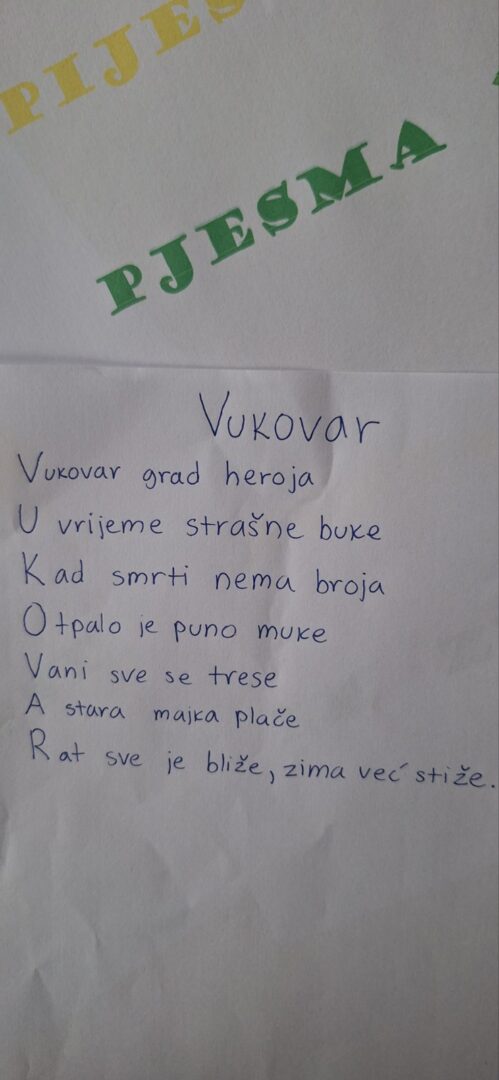 PIJES
PJESMA
Vukovar
Vukovar grad heroja
U vrijeme strašne buke
Kad smrti nema broja
Otpalo je puno muke
Vani sve se trese
A stara majka plače
Rat sve je bliže, zima već stiže.